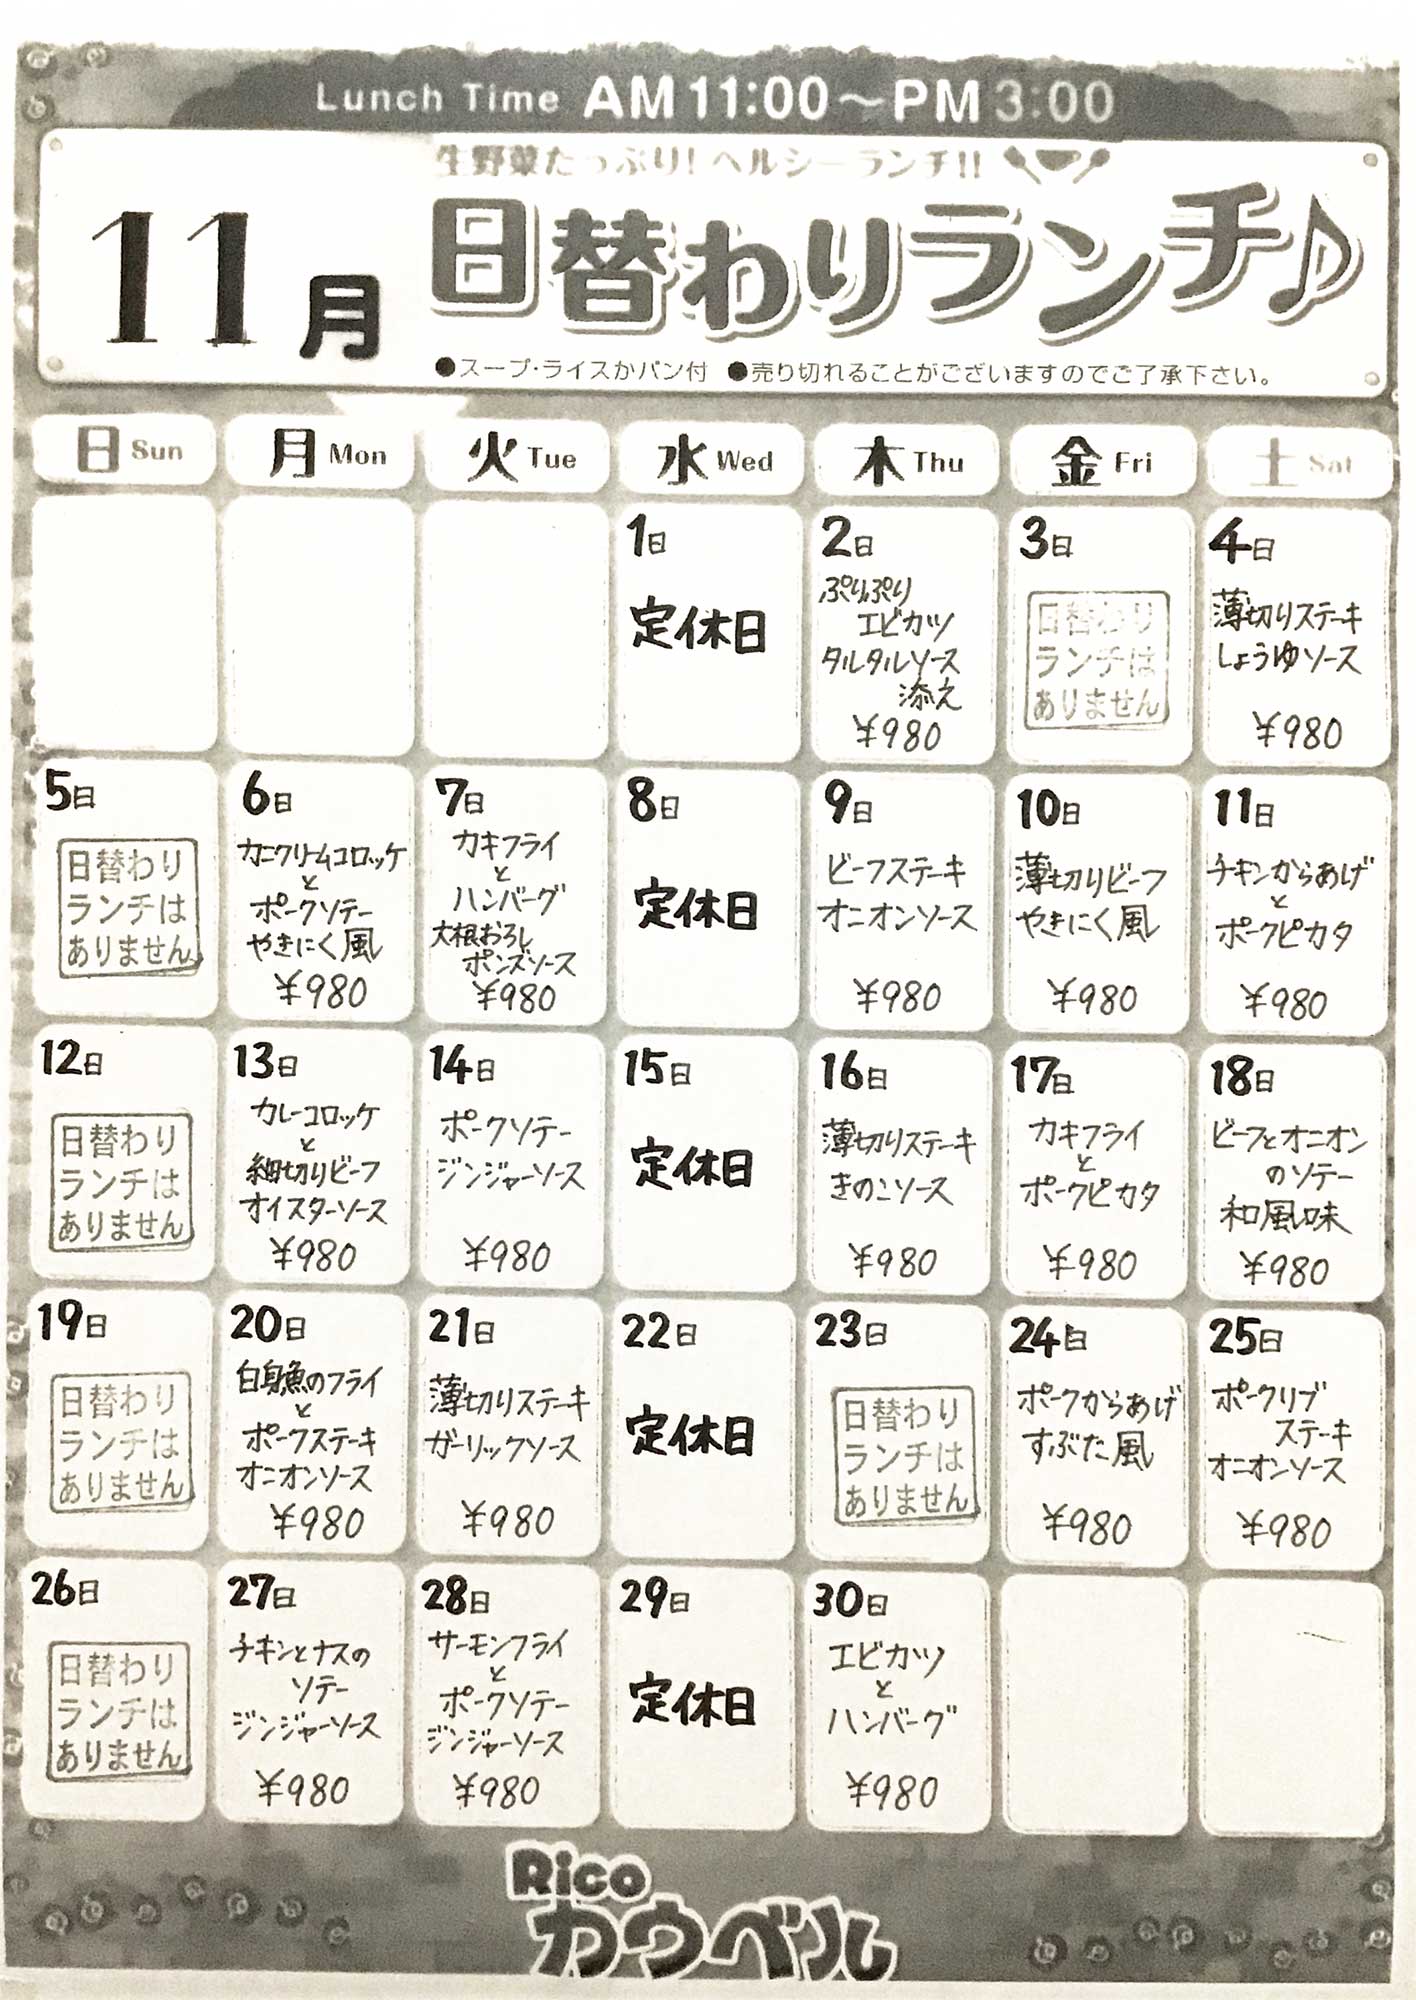 Lunch Time AM 11:00～PM 3:00
生野菜たっぷり！ヘルシーランチ!!
11月
日替わりランチ♪
●スープ・ライスかパン付 ●売り切れることがございますのでご了承下さい。
日 Sun 月 Mon 火 Tue 水 Wed 木 Thu 金 Fri 土 Sat
1日
定休日
2日
ぷりぷり
エビカツ
タルタルソース
添え
¥980
3日
日替わり
ランチは
ありません
4日
薄切りステーキ
しょうゆソース
¥980
5日
日替わり
ランチは
ありません
6日
カニクリームコロッケ
と
ポークソテー
やきにく風
¥980
7日
カキフライ
と
ハンバーグ
大根おろし
ポンズソース
¥980
8日
定休日
9日
ビーフステーキ
オニオンソース
¥980
10日
薄切りビーフ
やきにく風
¥980
11日
チキンからあげ
と
ポークピカタ
¥980
12日
日替わり
ランチは
ありません
13日
カレーコロッケ
と
細切りビーフ
オイスターソース
¥980
14日
ポークソテー
ジンジャーソース
¥980
15日
定休日
16日
薄切りステーキ
きのこソース
¥980
17日
カキフライ
と
ポークピカタ
¥980
18日
ビーフとオニオン
のソテー
和風味
¥980
19日
日替わり
ランチは
ありません
20日
白身魚のフライ
と
ポークステーキ
オニオンソース
¥980
21日
薄切りステーキ
ガーリックソース
¥980
22日
定休日
23日
日替わり
ランチは
ありません
24日
ポークからあげ
すぶた風
¥980
25日
ポークリブ
ステーキ
オニオンソース
¥980
26日
日替わり
ランチは
ありません
27日
チキンとナスの
ソテー
ジンジャーソース
¥980
28日
サーモンフライ
と
ポークソテー
ジンジャーソース
¥980
29日
定休日
30日
エビカツ
と
ハンバーグ
¥980
Rico
カウベル